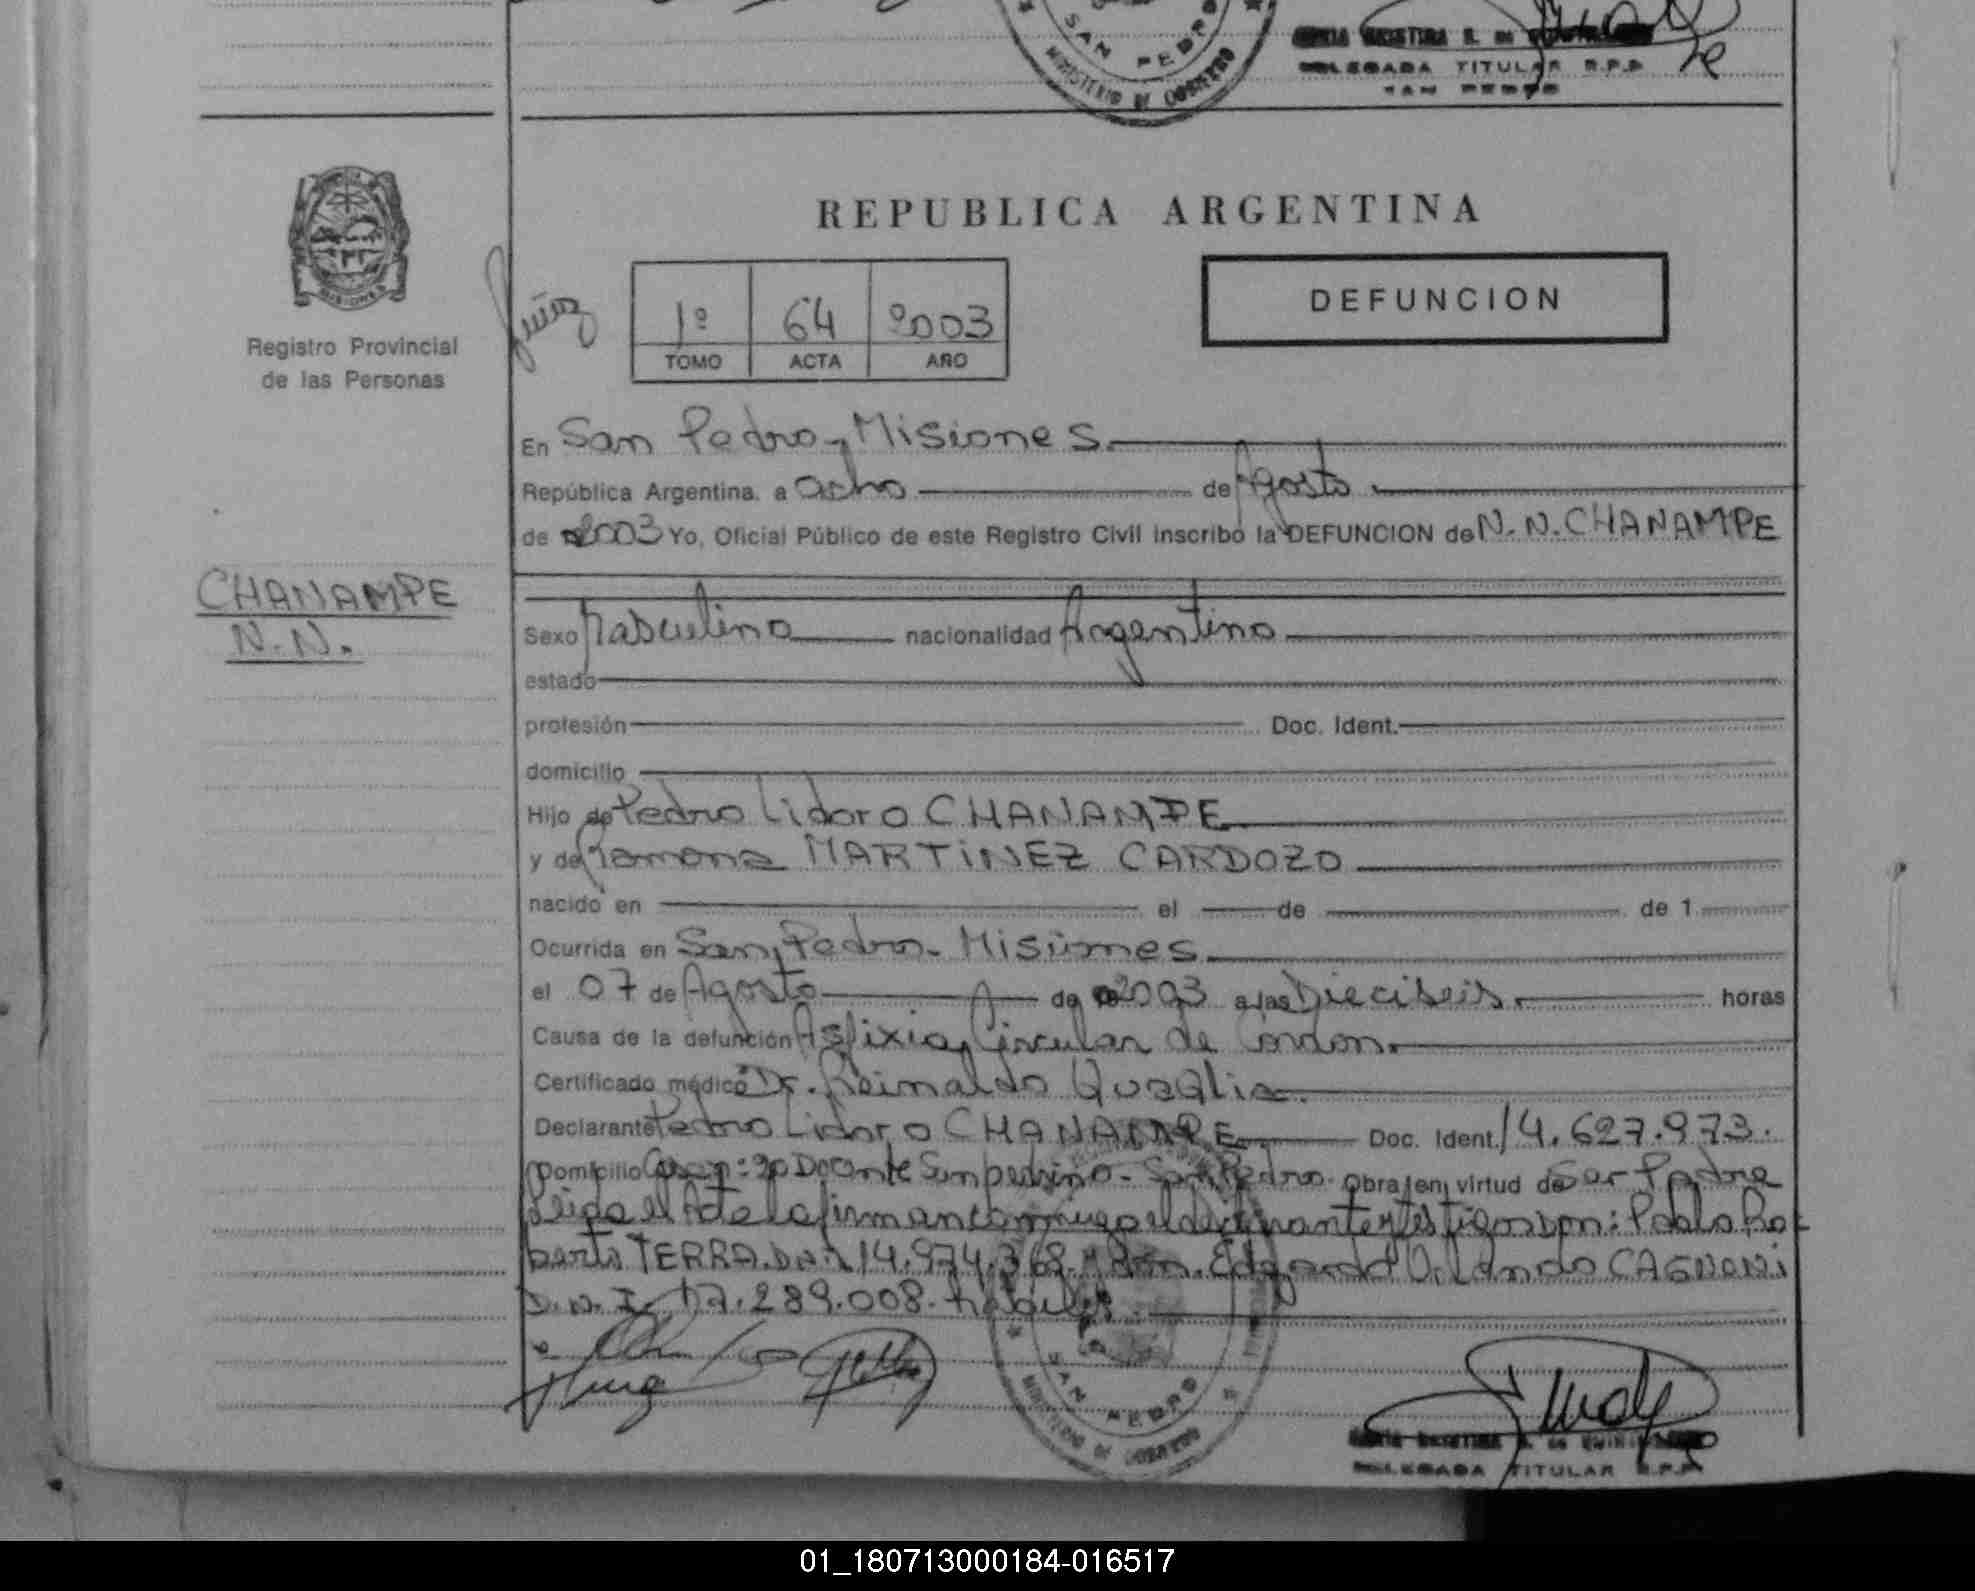 SAN PEDRO
MINISTERIO DE GOBIERNO
DELEGADA TITULAR R.P.P.
SAN PEDRO
MISIONES
Registro Provincial
de las Personas
REPUBLICA ARGENTINA
1º 64 2003
TOMO ACTA AÑO
DEFUNCION
En San Pedro - Misiones.
República Argentina, a ocho de Agosto
de 2003 Yo, Oficial Público de este Registro Civil inscribo la DEFUNCION de N.N. CHANAMPE
CHANAMPE
N.N.
Sexo Masculino nacionalidad Argentino
estado
profesión Doc. Ident.
domicilio
Hijo de Pedro Lidoro CHANAMPE
y de Ramona MARTINEZ CARDOZO
nacido en el de de 1
Ocurrida en San Pedro - Misiones
el 07 de Agosto de 2003 a las Dieciseis. horas
Causa de la defunción Asfixia, Circular de Cordon.
Certificado médico Dr. Reinaldo Quaglia.
Declarante Pedro Lidoro CHANAMPE Doc. Ident. 14.627.973.
Domicilio Docente Sanpedrino - San Pedro. Obra en virtud de Ser Padre
Leida el Acta la firman conmigo el declarante y testigos Don: Pablo Ro-
berto TERRA D.N.I. 14.974.368. y Don. Edgardo Orlando CAGNONI
D.N.I. 17.289.008. habiles.
SAN PEDRO
MINISTERIO DE GOBIERNO
DELEGADA TITULAR R.P.P.
01_180713000184-016517